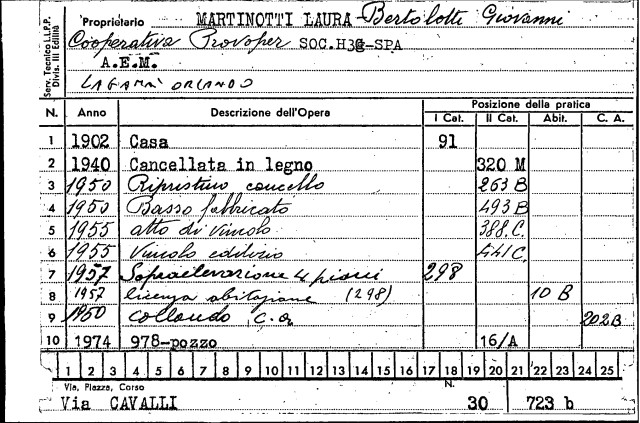 Serv. Tecnico LL.PP.
Divis. III Edilità
Proprietario MARTINOTTI LAURA - Bertolotti Giovanni
Cooperativa Provoper SOC. H3G-SPA
A.E.M.
LAGANA' ORLANDO
N. Anno Descrizione dell'Opera Posizione della pratica
I Cat. II Cat. Abit. C. A.
1 1902 Casa 91
2 1940 Cancellata in legno 320 M
3 1950 Ripristino cancello 263 B
4 1950 Basso fabbricato 493 B
5 1955 atto di vincolo 388 C.
6 1955 Vincolo edilizio 441 C.
7 1957 Sopraelevazione 4 piani 298
8 1957 licenza abitazione (298) 10 B
9 1950 Collaudo C.a 202B
10 1974 978-pozzo 16/A
1 2 3 4 5 6 7 8 9 10 11 12 13 14 15 16 17 18 19 20 21 22 23 24 25
Via, Piazza, Corso N.
Via CAVALLI 30 723 b